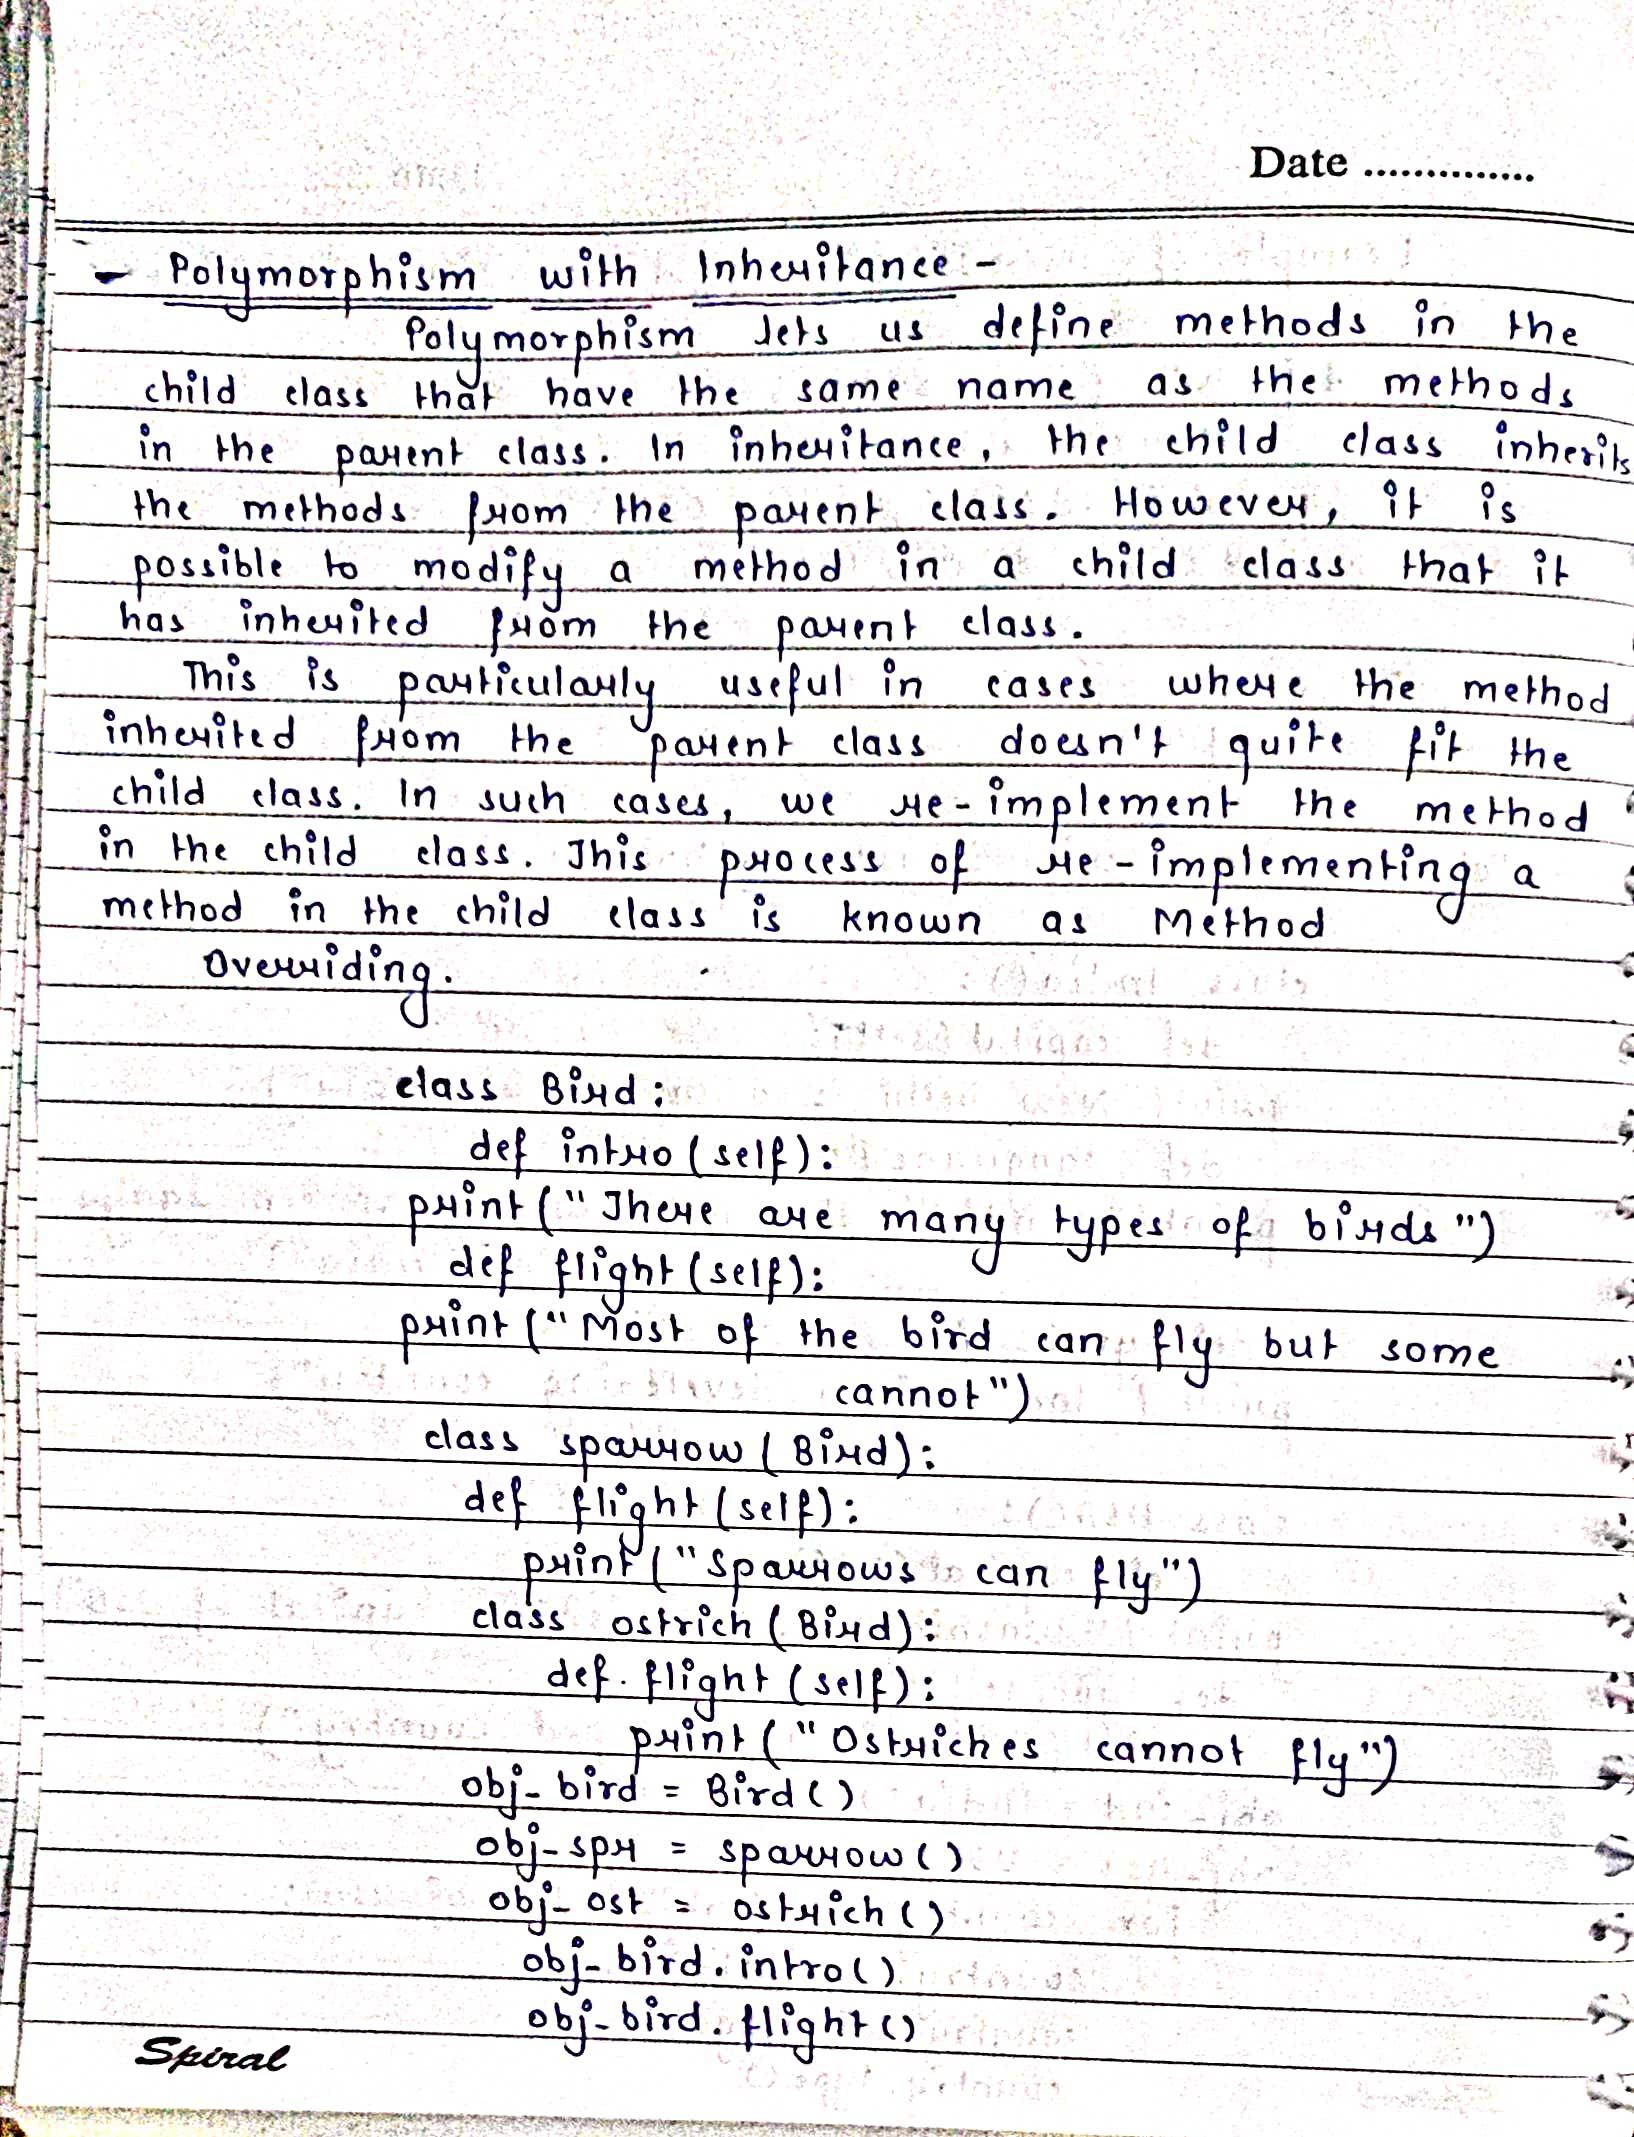 Date ..............
- Polymorphism with Inheritance :-
Polymorphism lets us define methods in the
child class that have the same name as the methods
in the parent class. In inheritance, the child class inherits
the methods from the parent class. However, it is
possible to modify a method in a child class that it
has inherited from the parent class.
This is particularly useful in cases where the method
inherited from the parent class doesn't quite fit the
child class. In such cases, we re-implement the method
in the child class. This process of re-implementing a
method in the child class is known as Method
Overriding.
class Bird:
def intro(self):
print("There are many types of birds")
def flight(self):
print("Most of the bird can fly but some
cannot")
class sparrow(Bird):
def flight(self):
print("Sparrows can fly")
class ostrich(Bird):
def. flight(self):
print("Ostriches cannot fly")
obj_bird = Bird()
obj_spr = sparrow()
obj_ost = ostrich()
obj_bird.intro()
obj_bird.flight()
Spiral